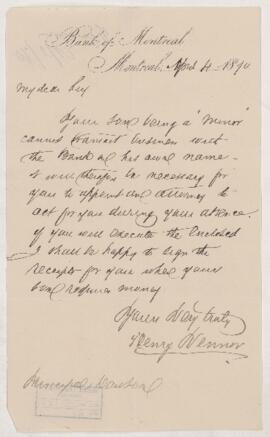 Bank of Montreal
Montreal, April 4 1890
My dear Sir
Your son being a "minor"
cannot transact business with
the Bank in his own name -
it will therefore be necessary for
you to appoint an attorney to
act for you during your absence.
if you will execute the enclosed
I shall be happy to sign the
receipts for you when your
son requires money
Yours very truly
Henry Vennor
Principal Dawson